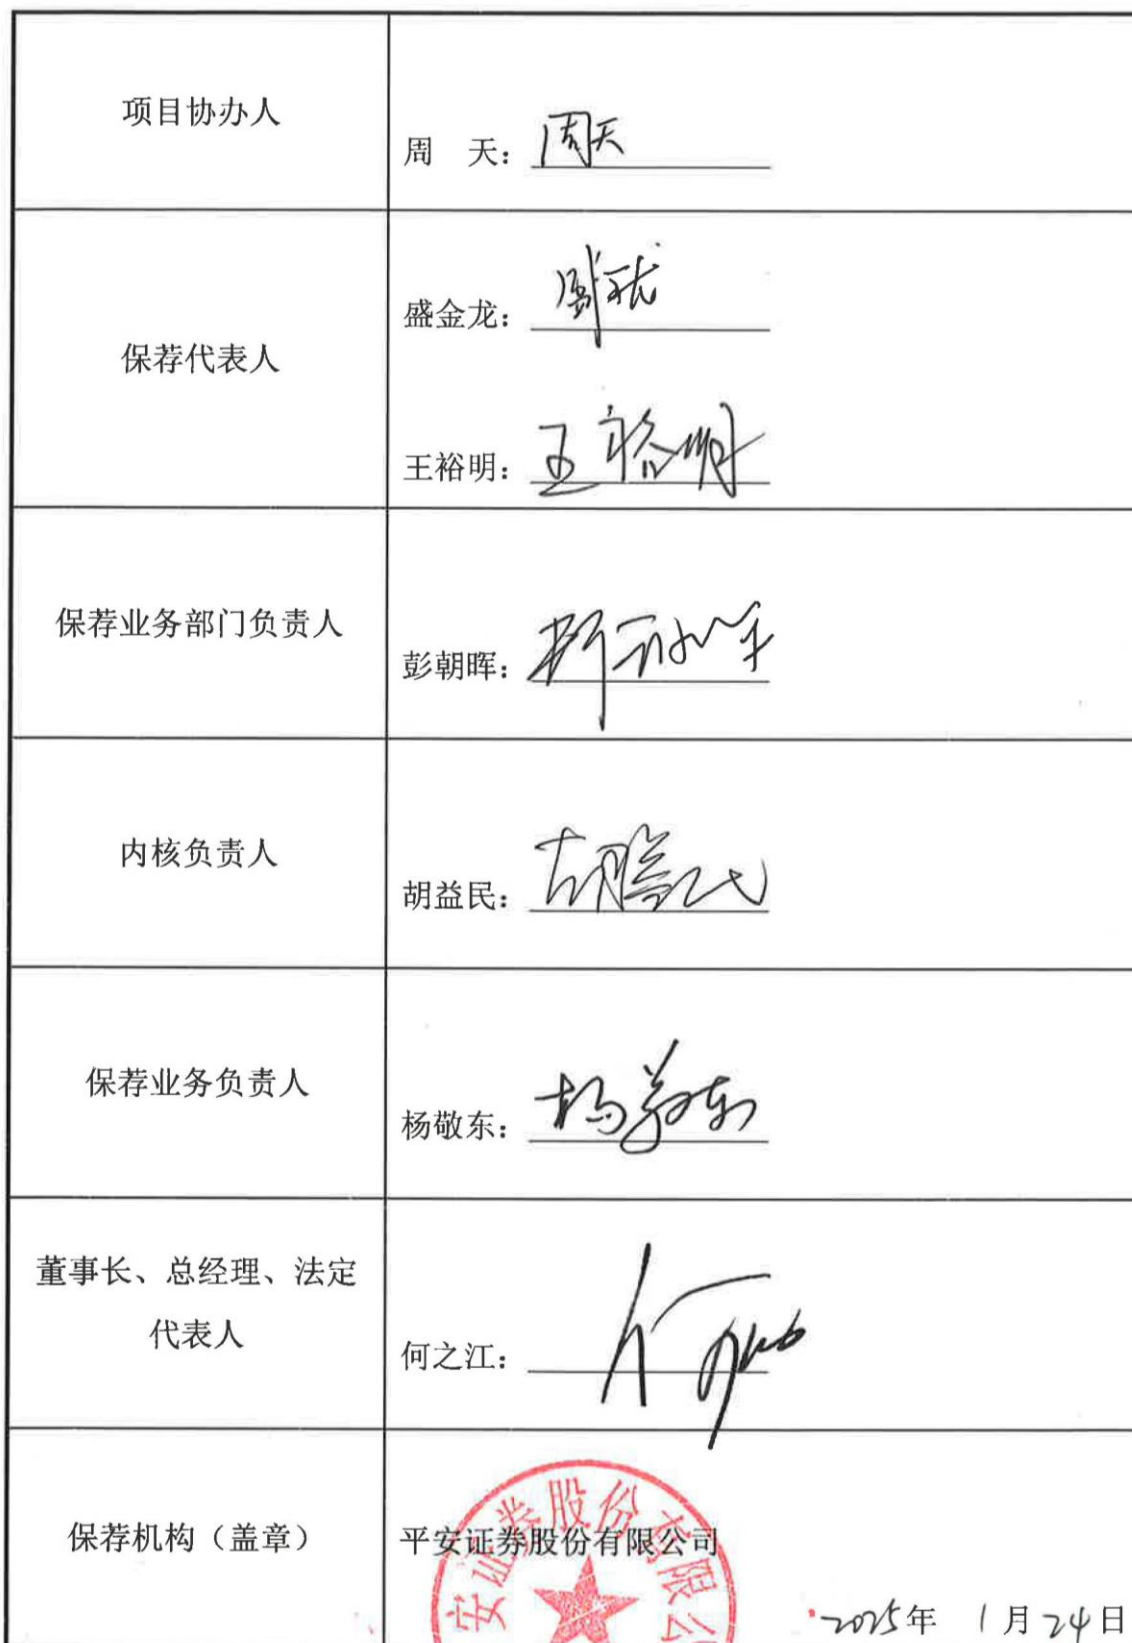 项目协办人
周 天：周天
保荐代表人
盛金龙：
王裕明：王裕明
保荐业务部门负责人
彭朝晖：
内核负责人
胡益民：胡益民
保荐业务负责人
杨敬东：杨敬东
董事长、总经理、法定
代表人
何之江：
保荐机构（盖章）
平安证券股份有限公司
安证券股份有限公
2025年 1月24日